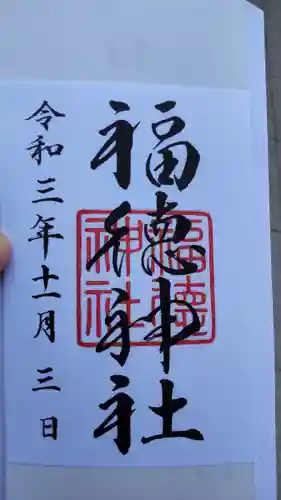 福徳神社
福徳神社
令和三年十一月三日